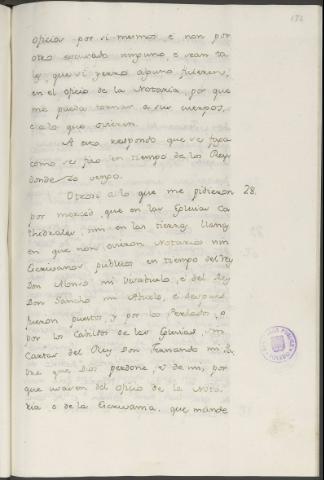 132
oficiar por si mesmos e non por
otro escusado ninguno, e sean ta
les que si yerro alguno ficieren,
en el oficio de la Notaría, por que
me pueda tornar a sus cuerpos,
e a lo que ovieren.
A esto respondo que se faga
como se fizo en tiempo de los Reyes
donde Yo vengo.
Otrosi a lo que me pidieron 28.
por merced, que en las Eglesias Ca
thedrales, nin en las tierras llanas
en que non ovieron Notarios nin
Escrivanos públicos en tiempo del Rey
Don Alonso mi Visabuelo, e del Rey
Don Sancho mi Abuelo, e despues
fueron puestos y por los Perlados, o
por los Cabildos de las Eglesias,
Cartas del Rey Don Fernando mi Pa
dre que Dios perdone, e de mi, por
que usaven del oficio de la Nota
ria e de la Escrivania, que mande